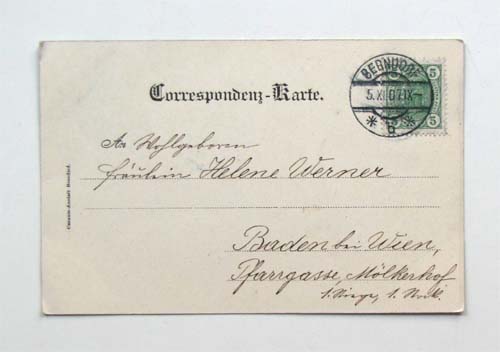 BERNDORF
5.XI.07.IX
* B *
5
5
Correspondenz-Karte.
An Wohlgeboren
Fräulein Helene Werner
Baden bei Wien,
Pfarrgasse, Mölkerhof
1. Stiege, 1. Stock.